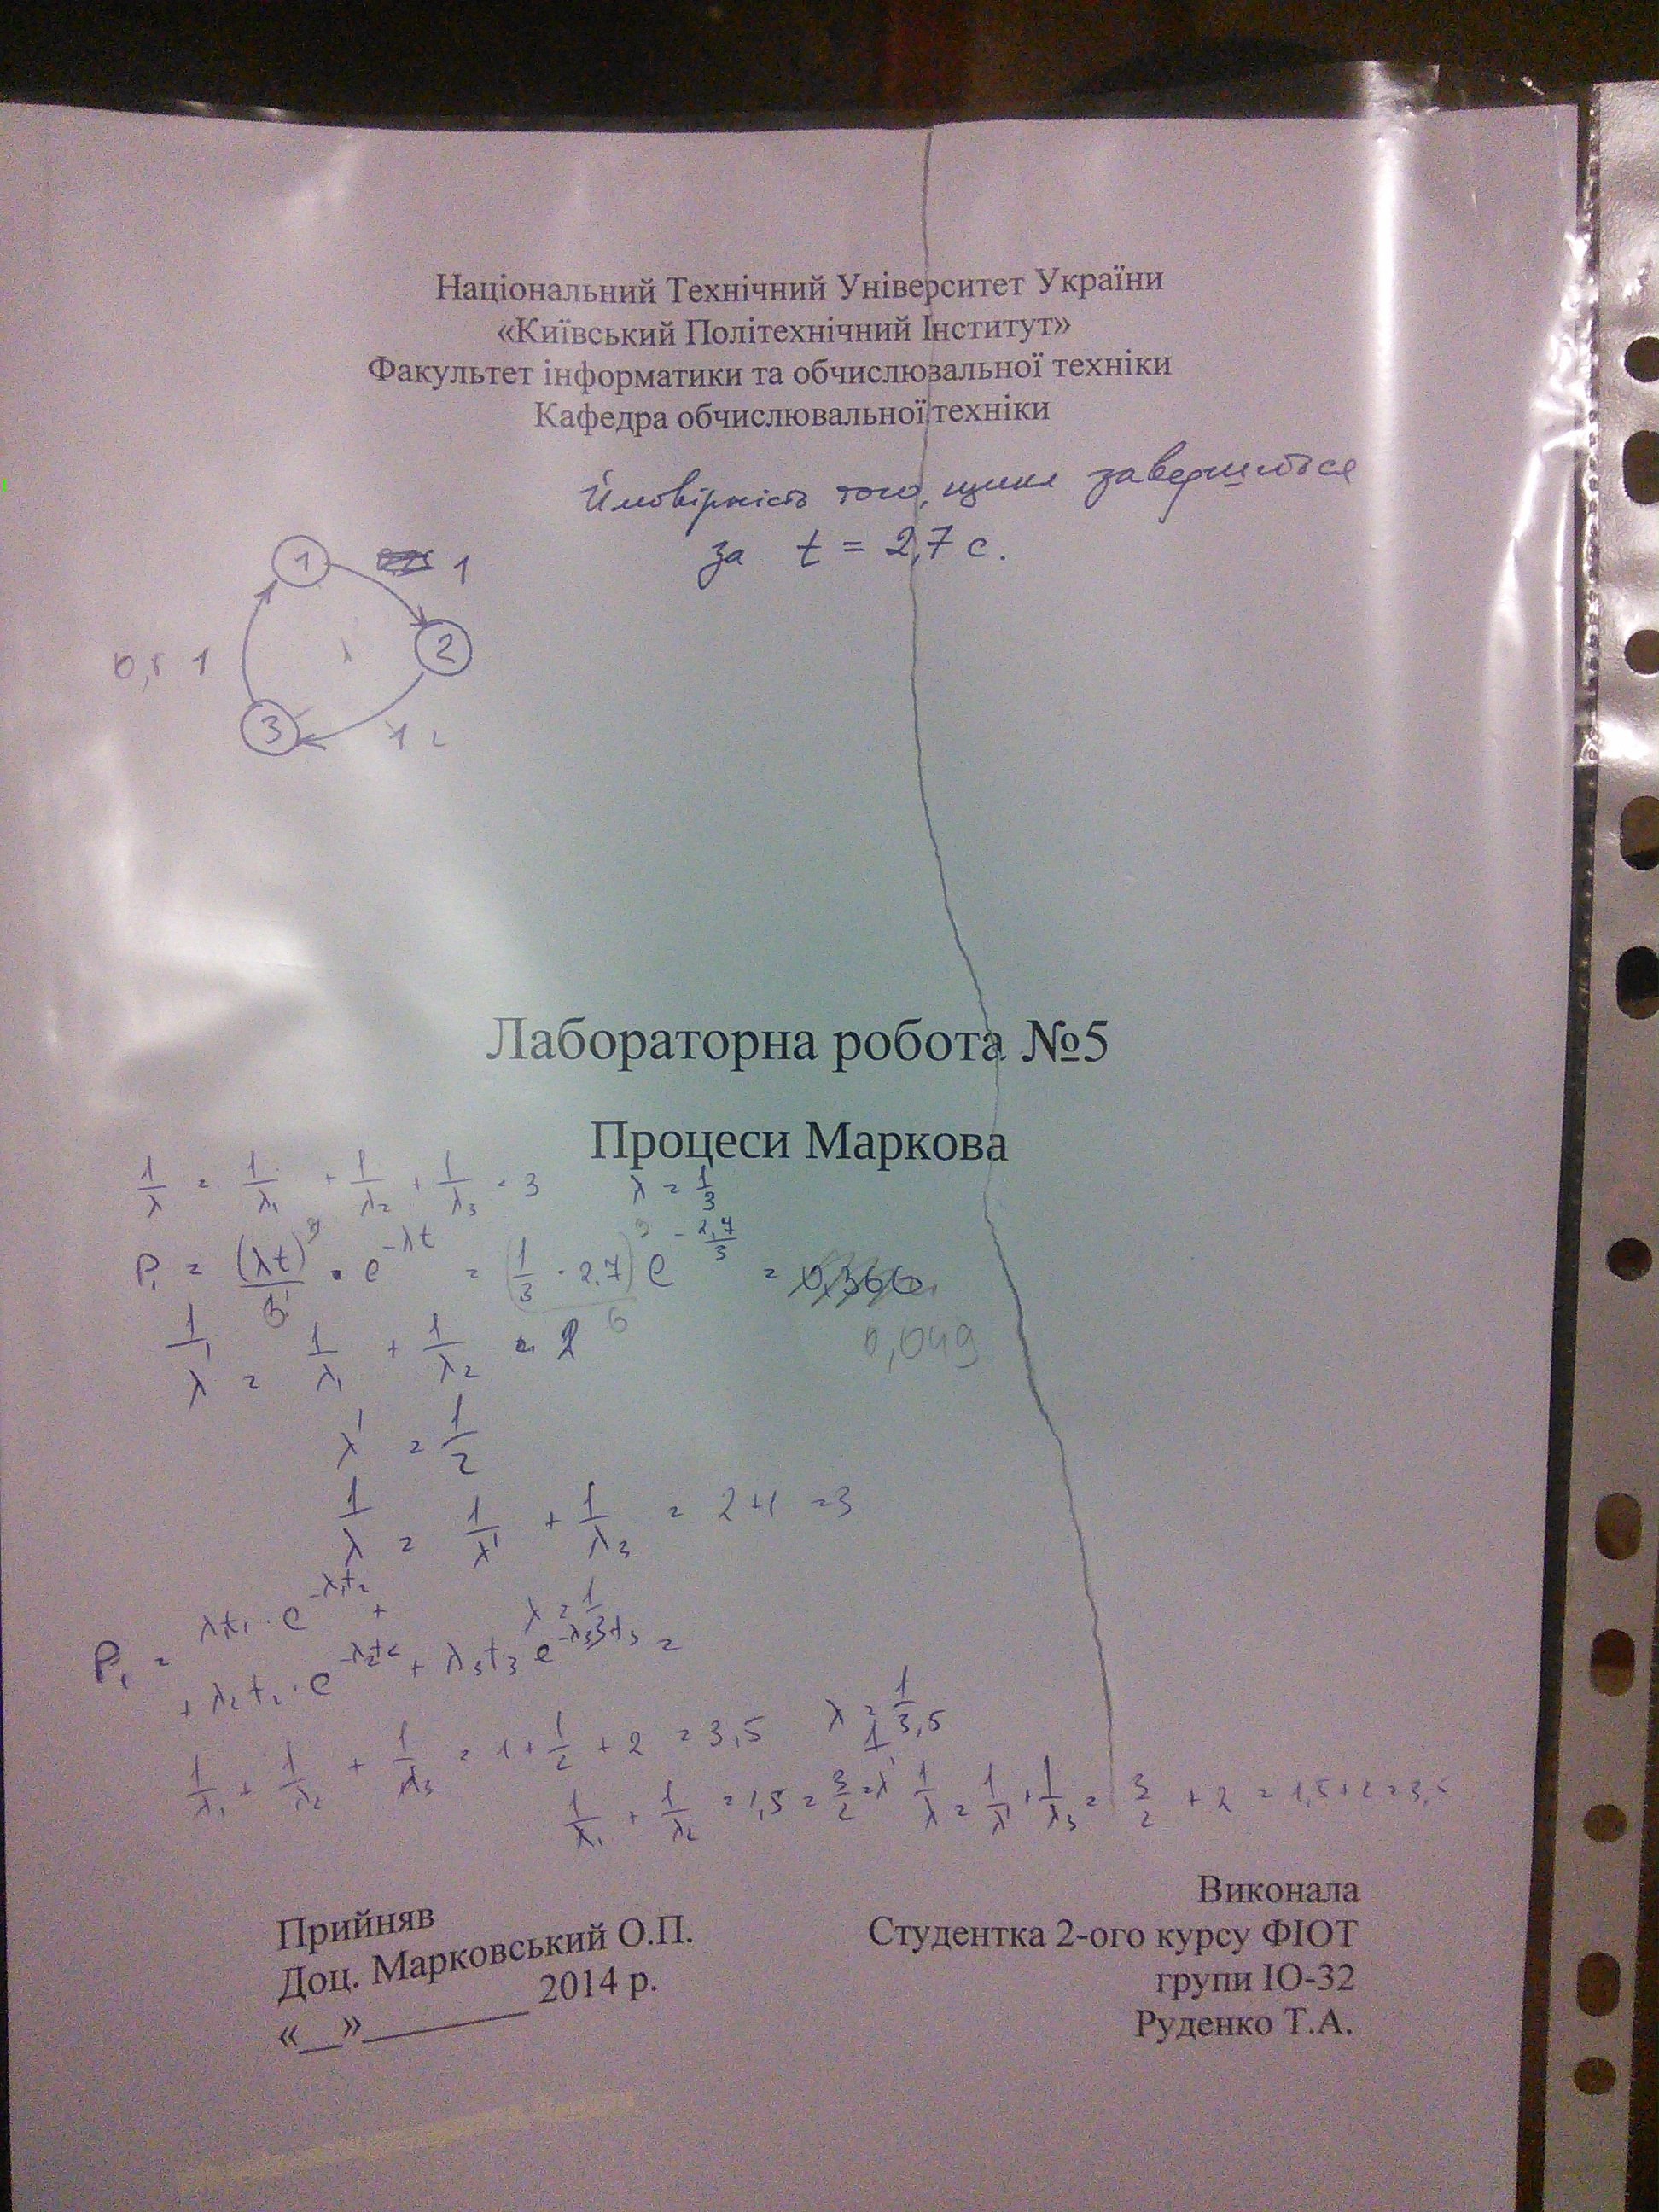 Національний Технічний Університет України
«Київський Політехнічний Інститут»
Факультет інформатики та обчислювальної техніки
Кафедра обчислювальної техніки
Ймовірність того, цикл завершиться
за t = 2,7 с.
1
1
2
1
3
Лабораторна робота №5
Процеси Маркова
1/λ = 1/λ₁ + 1/λ₂ + 1/λ₃ = 3 λ = 1/3
P₁ = (λt)³/3! · e^(-λt) = (1/3 · 2,7)³/6 e^(-2,7/3) =
0,049
1/λ' = 1/λ₁ + 1/λ₂ = 2
λ' = 1/2
1/λ = 1/λ' + 1/λ₃ = 2+1 = 3
λ = 1/3
P₁ = λt₁ · e^(-λt₂) +
+ λ₂t₂ · e^(-λ₂t₂) + λ₃t₃ e^(-λ₃t₃) =
1/λ₁ + 1/λ₂ + 1/λ₃ = 1 + 1/2 + 2 = 3,5 λ = 1/3,5
1/λ₁ + 1/λ₂ = 1,5 = 3/2 = 1/λ' 1/λ = 1/λ' + 1/λ₃ = 3/2 + 2 = 1,5+2=3,5
Прийняв
Доц. Марковський О.П.
«__»________ 2014 р.
Виконала
Студентка 2-ого курсу ФІОТ
групи ІО-32
Руденко Т.А.